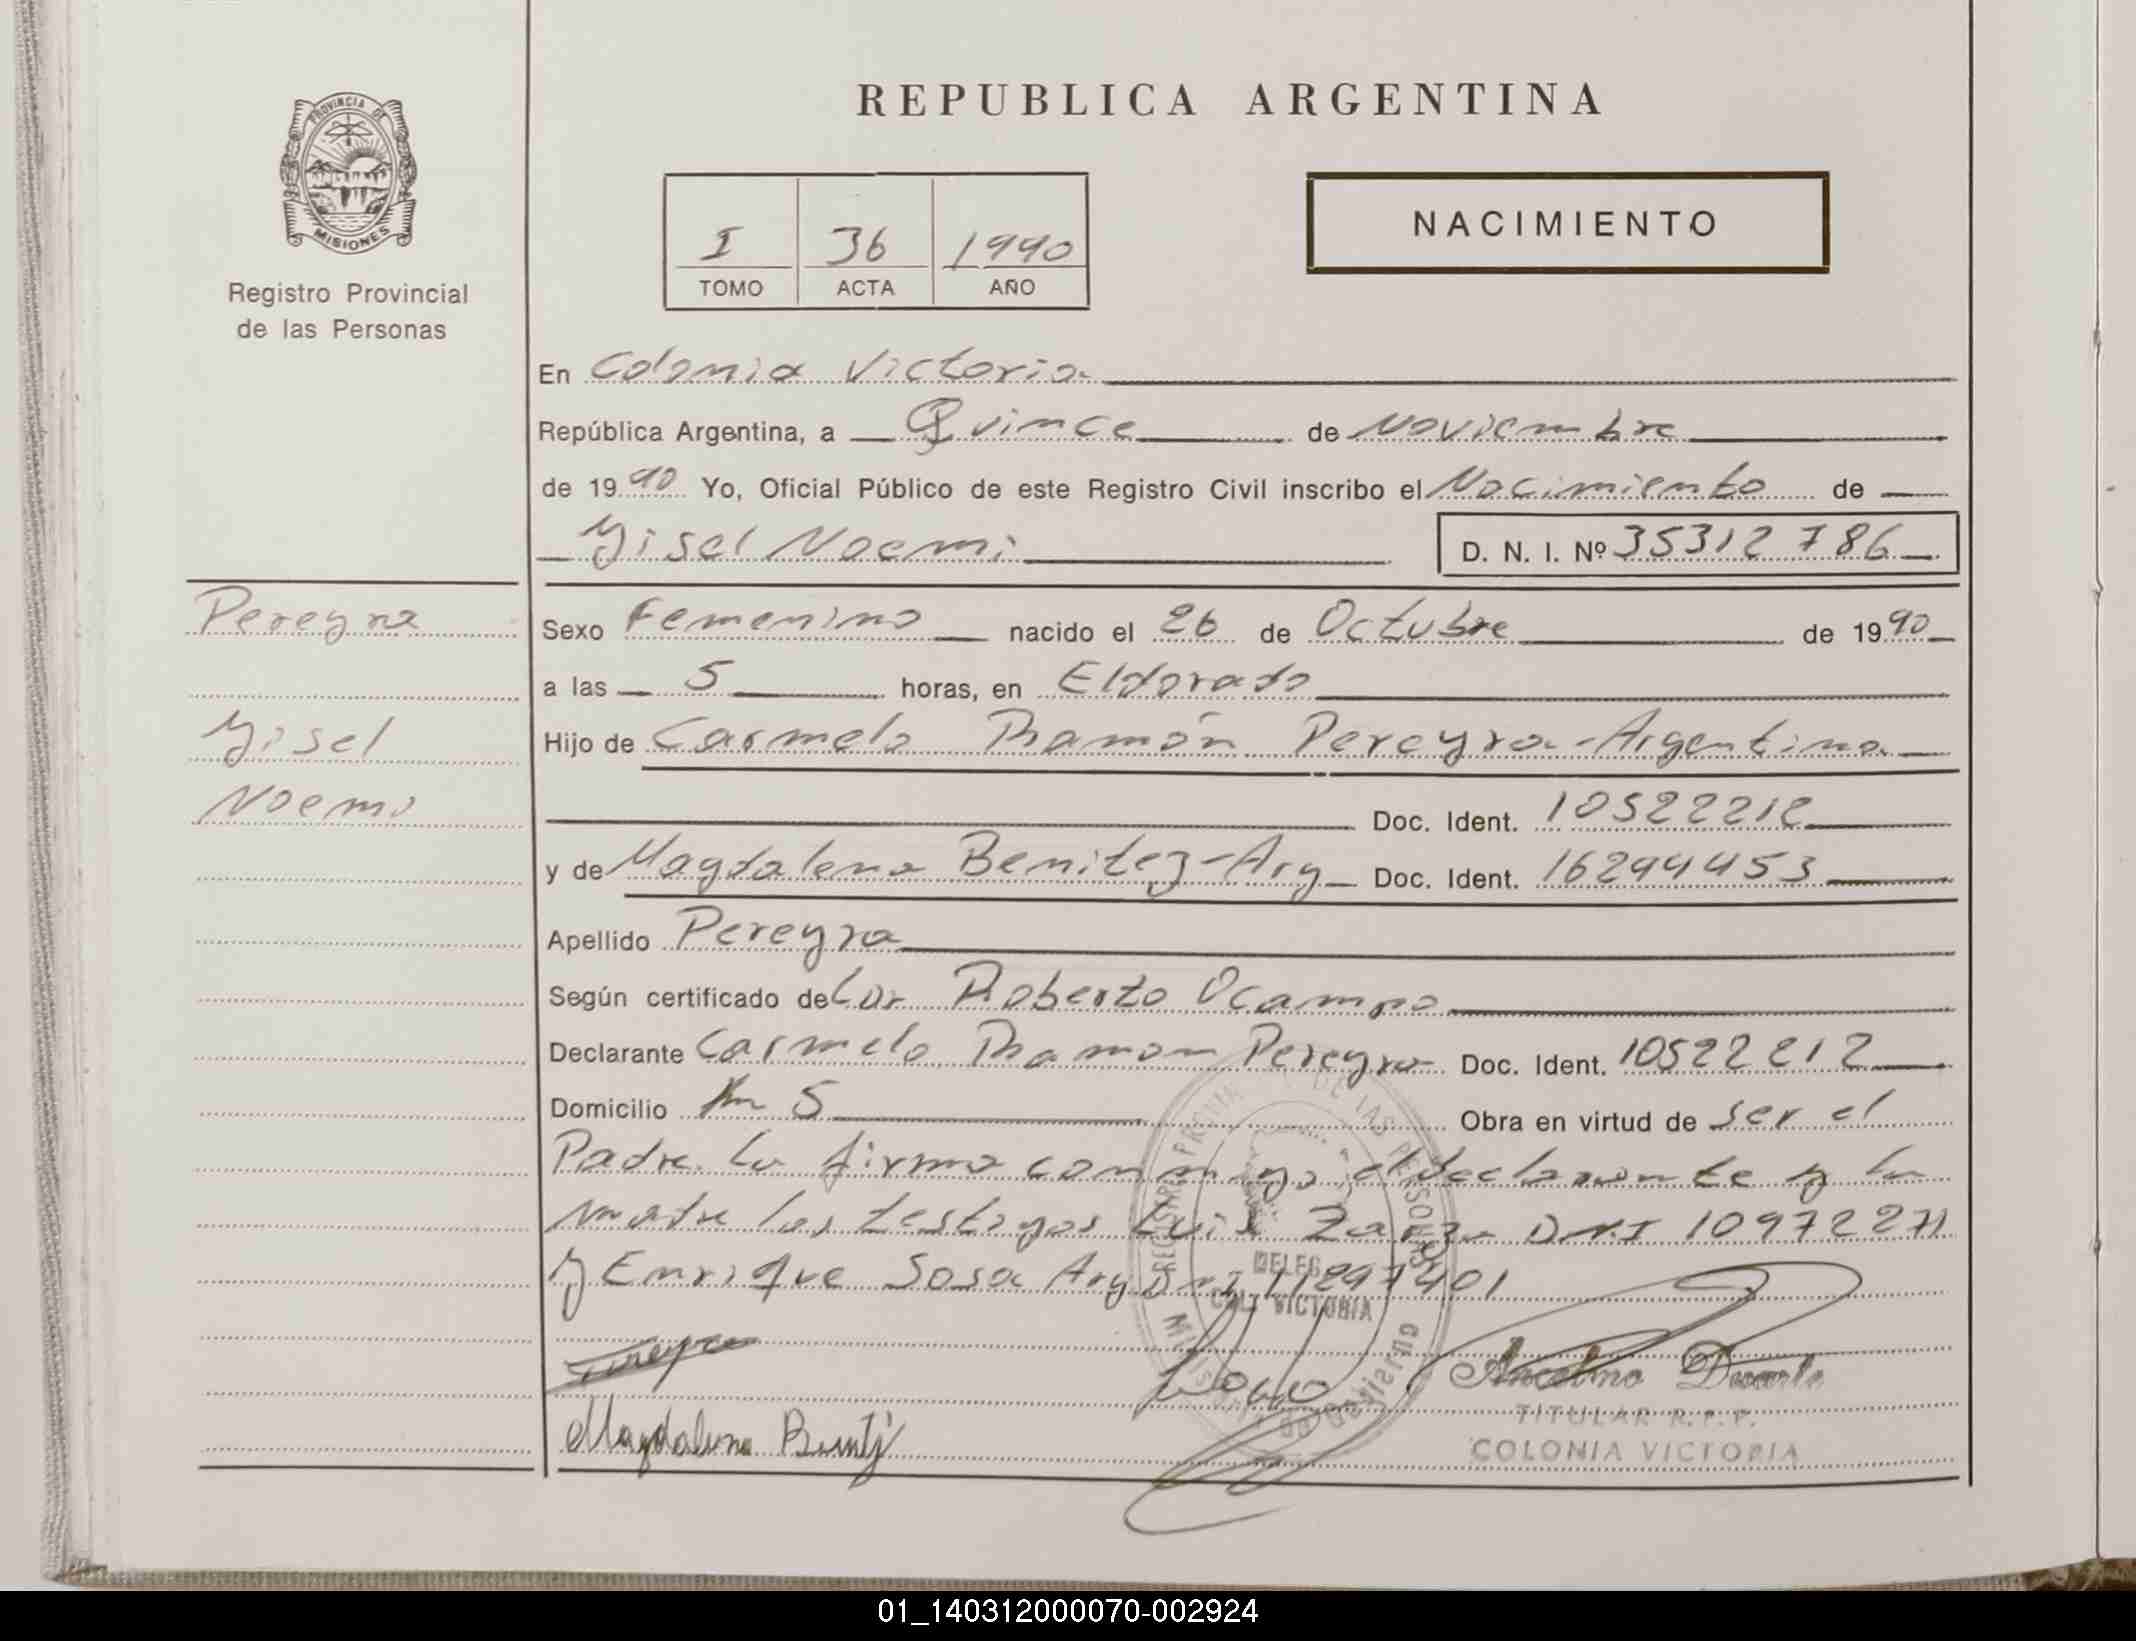 PROVINCIA DE
MISIONES
Registro Provincial
de las Personas
REPUBLICA ARGENTINA
NACIMIENTO
I 36 1990
TOMO ACTA AÑO
En Colonia Victoria
República Argentina, a Quince de Noviembre
de 1990 Yo, Oficial Público de este Registro Civil inscribo el Nacimiento de
Gisel Noemi D. N. I. Nº 35312786
Pereyra
Gisel
Noemi
Sexo Femenino nacido el 26 de Octubre de 1990
a las 5 horas, en Eldorado
Hijo de Carmelo Ramón Pereyra-Argentino
Doc. Ident. 10522212
y de Magdalena Benitez-Arg Doc. Ident. 16294453
Apellido Pereyra
Según certificado del Dr Roberto Ocampo
Declarante Carmelo Ramon Pereyra Doc. Ident. 10522212
Domicilio Km 5 Obra en virtud de ser el
Padre. La firma conmigo el declarante y la
madre los testigos Luis DNI 10972271
y Enrique Sosa Arg DNI 11297401
DELEG.
VICTORIA
Pereyra
Magdalena
Ancelmo Duarte
TITULAR R.P.P.
COLONIA VICTORIA
01_140312000070-002924